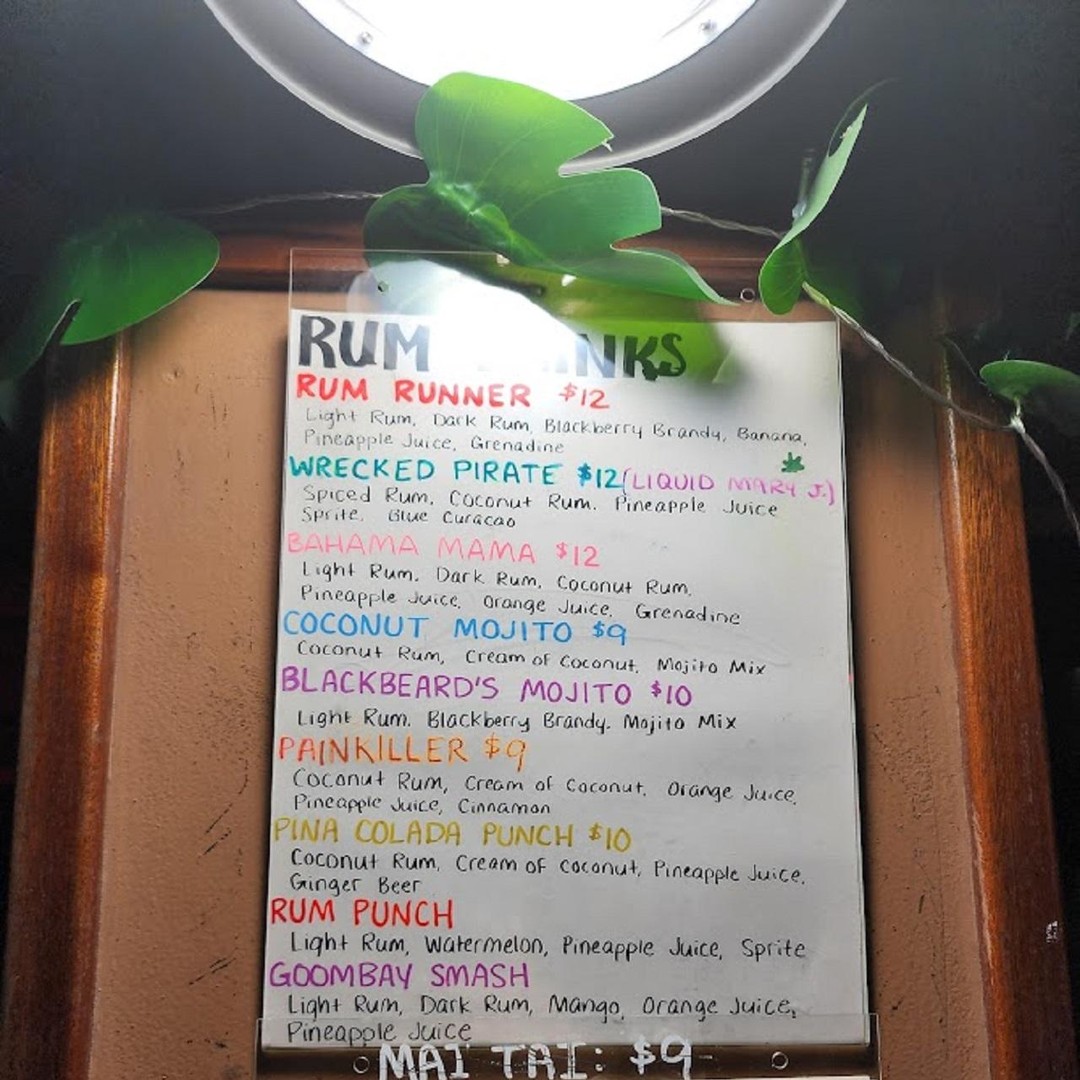 RUM
RUM RUNNER $12
Light Rum, Dark Rum, Blackberry Brandy, Banana,
Pineapple Juice, Grenadine
WRECKED PIRATE $12 (LIQUID MARY J.)
Spiced Rum, Coconut Rum, Pineapple Juice
Sprite, Blue Curacao
BAHAMA MAMA $12
Light Rum, Dark Rum, Coconut Rum,
Pineapple Juice, Orange Juice, Grenadine
COCONUT MOJITO $9
Coconut Rum, Cream of Coconut, Mojito Mix
BLACKBEARD'S MOJITO $10
Light Rum. Blackberry Brandy. Mojito Mix
PAINKILLER $9
Coconut Rum, Cream of Coconut, Orange Juice,
Pineapple Juice, Cinnamon
PINA COLADA PUNCH $10
Coconut Rum, Cream of Coconut, Pineapple Juice,
Ginger Beer
RUM PUNCH
Light Rum, Watermelon, Pineapple Juice, Sprite
GOOMBAY SMASH
Light Rum, Dark Rum, Mango, Orange Juice,
Pineapple Juice
MAI TAI: $9